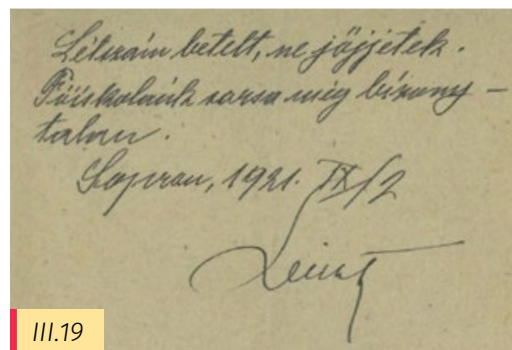 Létszám betelt, ne jöjjetek.
Főiskolánk sorsa még bizony-
talan.
Sopron, 1921. IX/2
III.19